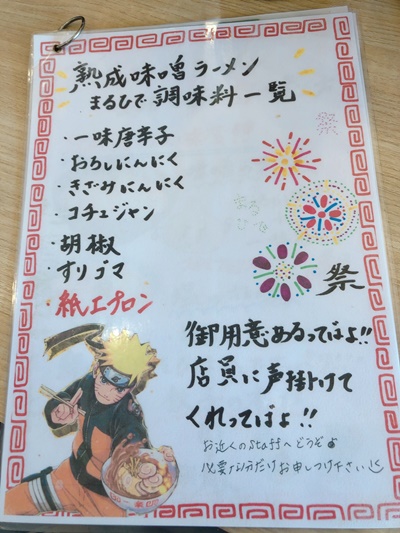 熟成味噌ラーメン
まるひで調味料一覧
・一味唐辛子
・おろしにんにく
・きざみにんにく
・コチュジャン
・胡椒
・すりゴマ
・紙エプロン
祭
まる
ひで
祭
御用意あるってばよ!!
店員に声掛けて
くれってばよ!!
お近くのstaffへどうぞ
必要な分だけお申しつけ下さい